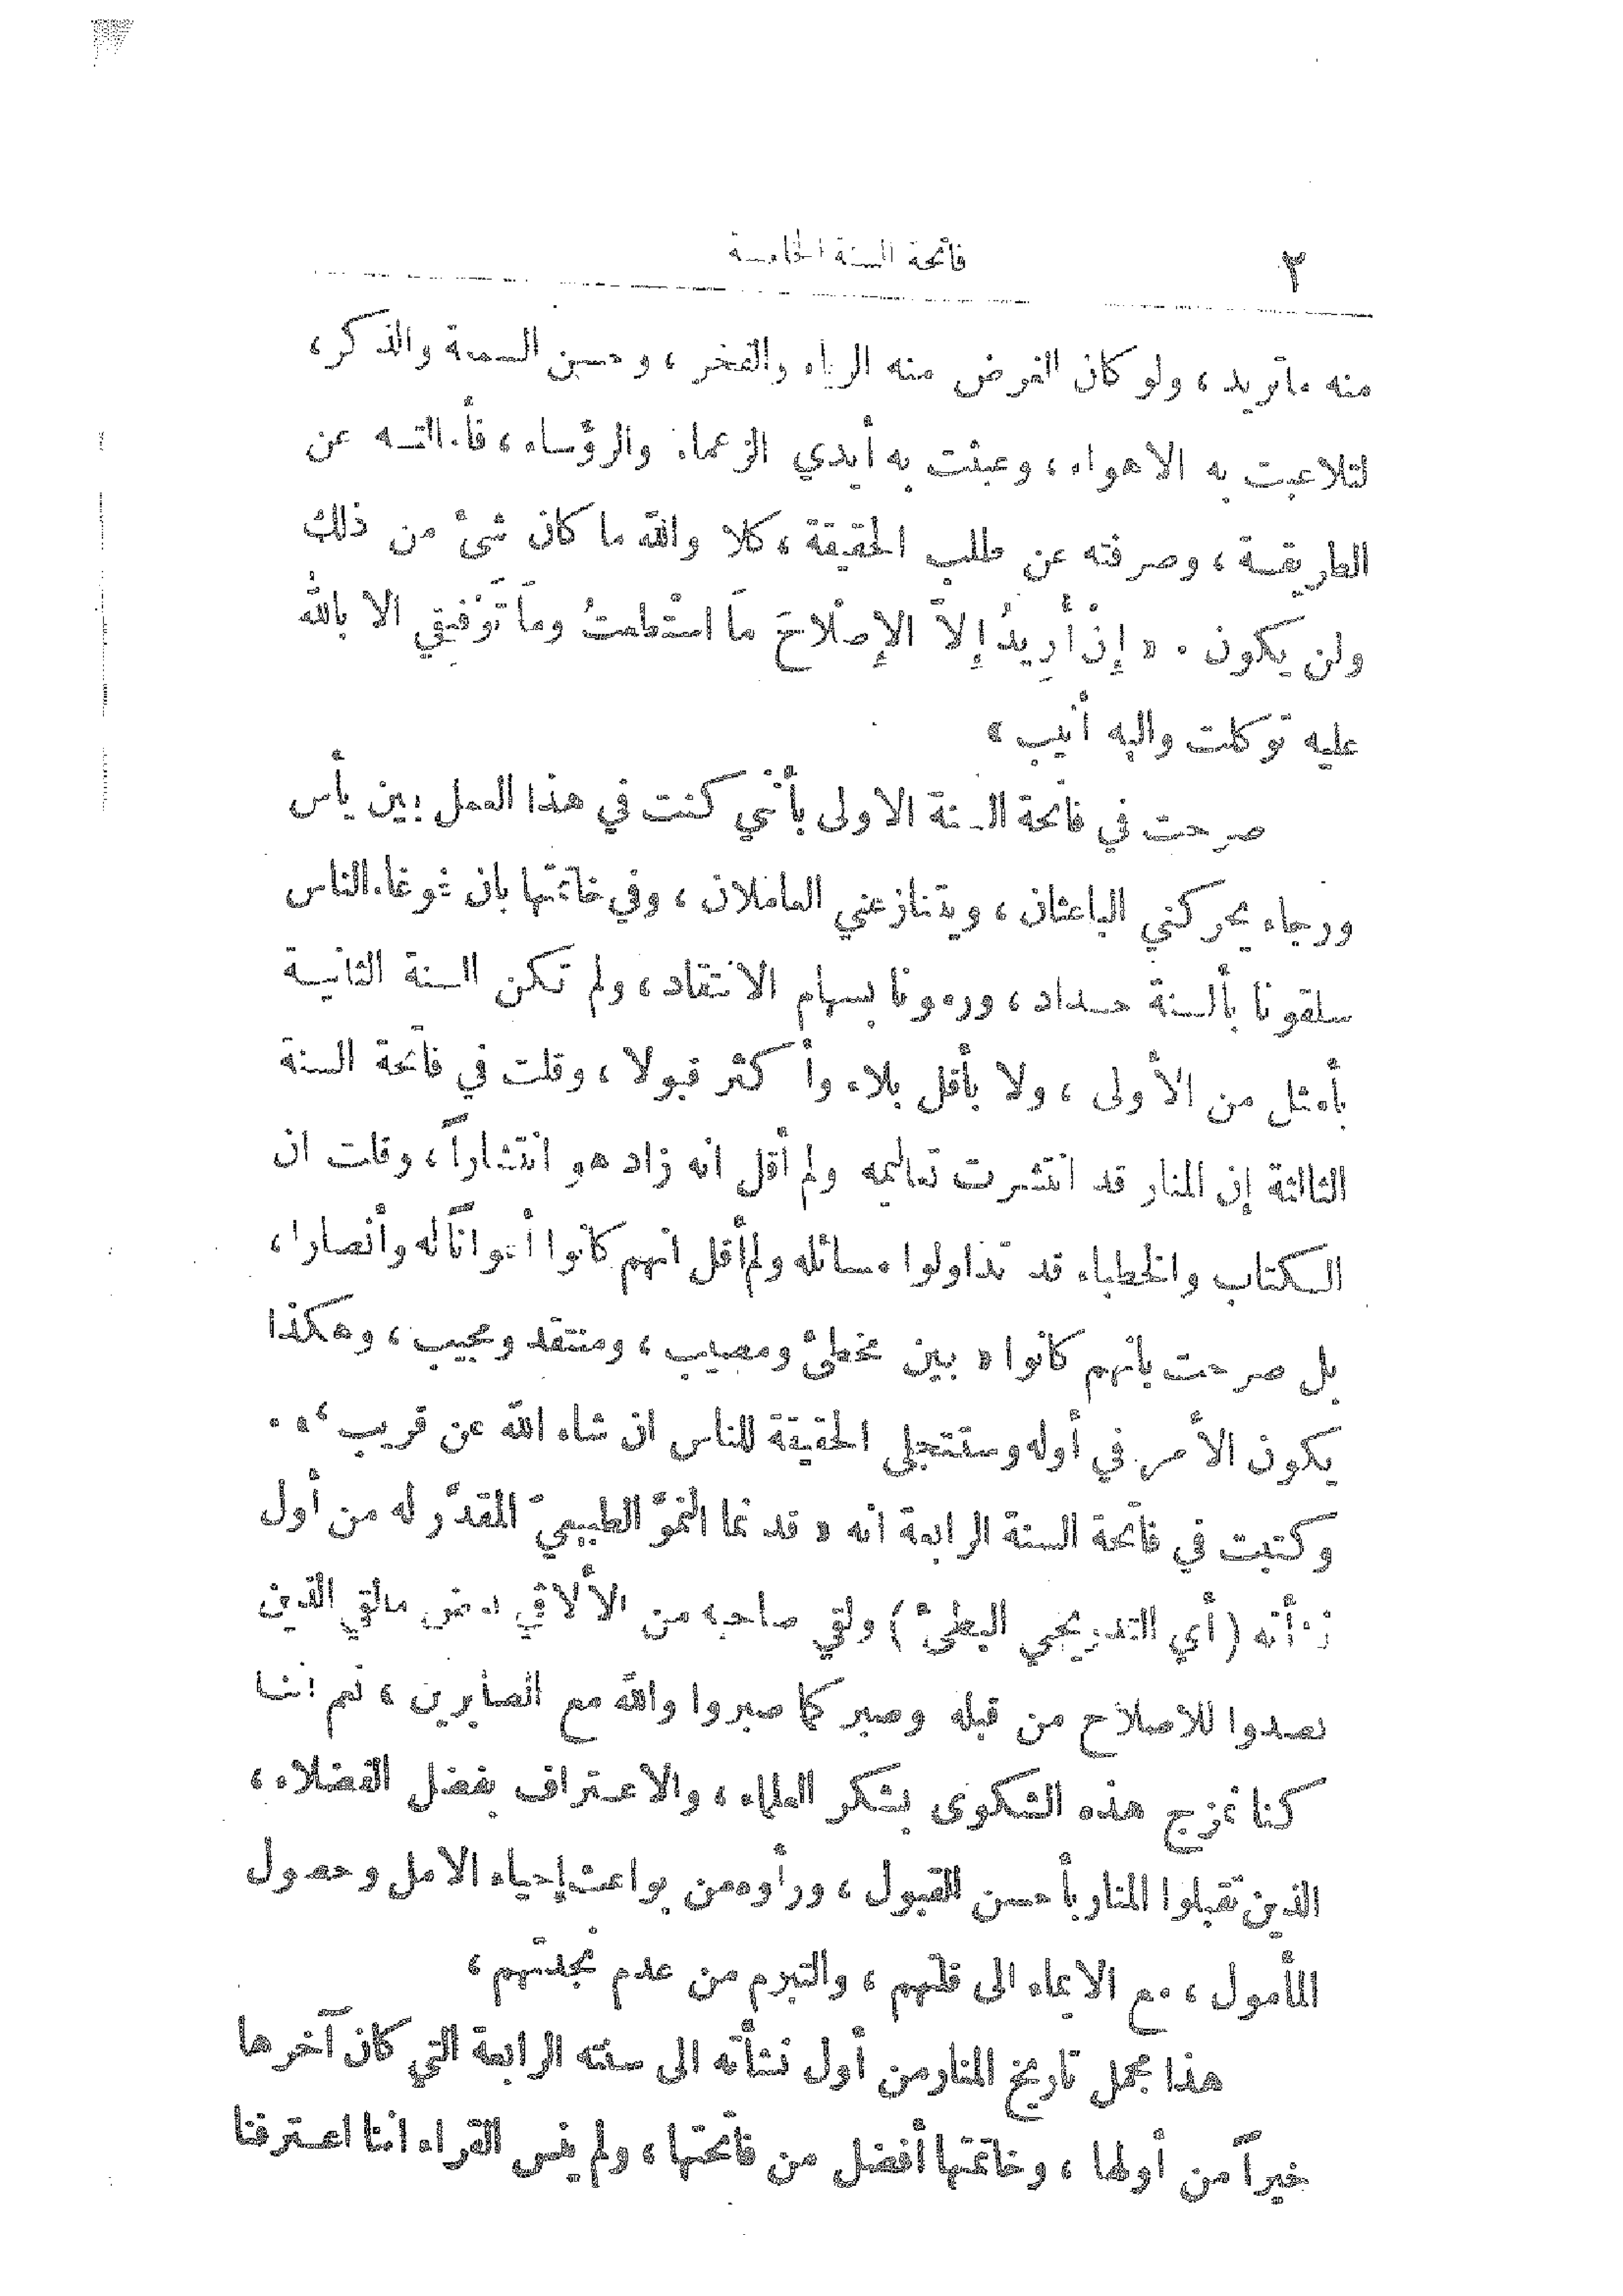 ٢
فاتحة السنة الخامسة
منه ماتريد ، ولو كان الغرض منه الرياء والفخر ، وحسن السمعة والذكر ،
لتلاعبت به الاهواء ، وعبثت به أيدي الزعماء والرؤساء ، فأمالته عن
الطريقة ، وصرفته عن طلب الحقيقة ، كلا والله ما كان شئ من ذلك
ولن يكون . « إِنْ أُرِيدُ إِلاَّ الإِصْلاَحَ مَا اسْتَطَعتُ ومَا تَوْفيقي الا بالله
عليه توكلت واليه أنيب »
صرحت في فاتحة السنة الاولى بأنني كنت في هذا العمل بين يأس
ورجاء يحركني الباعثان ، ويتنازعني العاملان ، وفي خاتمتها بان غوغاء الناس
سلقونا بألسنة حداد ، ورمونا بسهام الانتقاد ، ولم تكن السنة الثانية
بأمثل من الأولى ، ولا بأقل بلاء وأكثر قبولا ، وقلت في فاتحة السنة
الثالثة إن المنار قد انتشرت تعاليمه ولم أقل انه زاد هو انتشاراً ، وقلت ان
الكتاب والخطباء قد تداولوا مسائله ولم أقل انهم كانوا أعواناً له وأنصارا ،
بل صرحت بانهم كانوا « بين مخطئ ومصيب ، ومنتقد ومجيب ، وهكذا
يكون الأمر في أوله وستتجلى الحقيقة للناس ان شاء الله عن قريب » .
وكتبت في فاتحة السنة الرابعة انه « قد نما النموّ الطبيعيّ المقدّر له من أول
نشأته ( أي التدريجي البطئ ) ولقي صاحبه من الألاقي بعض مالقي الذين
تصدوا للاصلاح من قبله وصبر كما صبروا والله مع الصابرين ، ثم اننا
كنا نمزج هذه الشكوى بشكر العلماء ، والاعتراف بفضل الفضلاء ،
الذين تقبلوا المنار بأحسن القبول ، ورأوه من بواعث إحياء الامل وحصول
المأمول ، مع الايماء الى قلتهم ، والتبرم من عدم نجدتهم ،
هذا مجمل تاريخ المنار من أول نشأته الى سنته الرابعة التي كان آخرها
خيراً من أولها ، وخاتمتها أفضل من فاتحتها ، ولم ينس القراء اننا اعترفنا